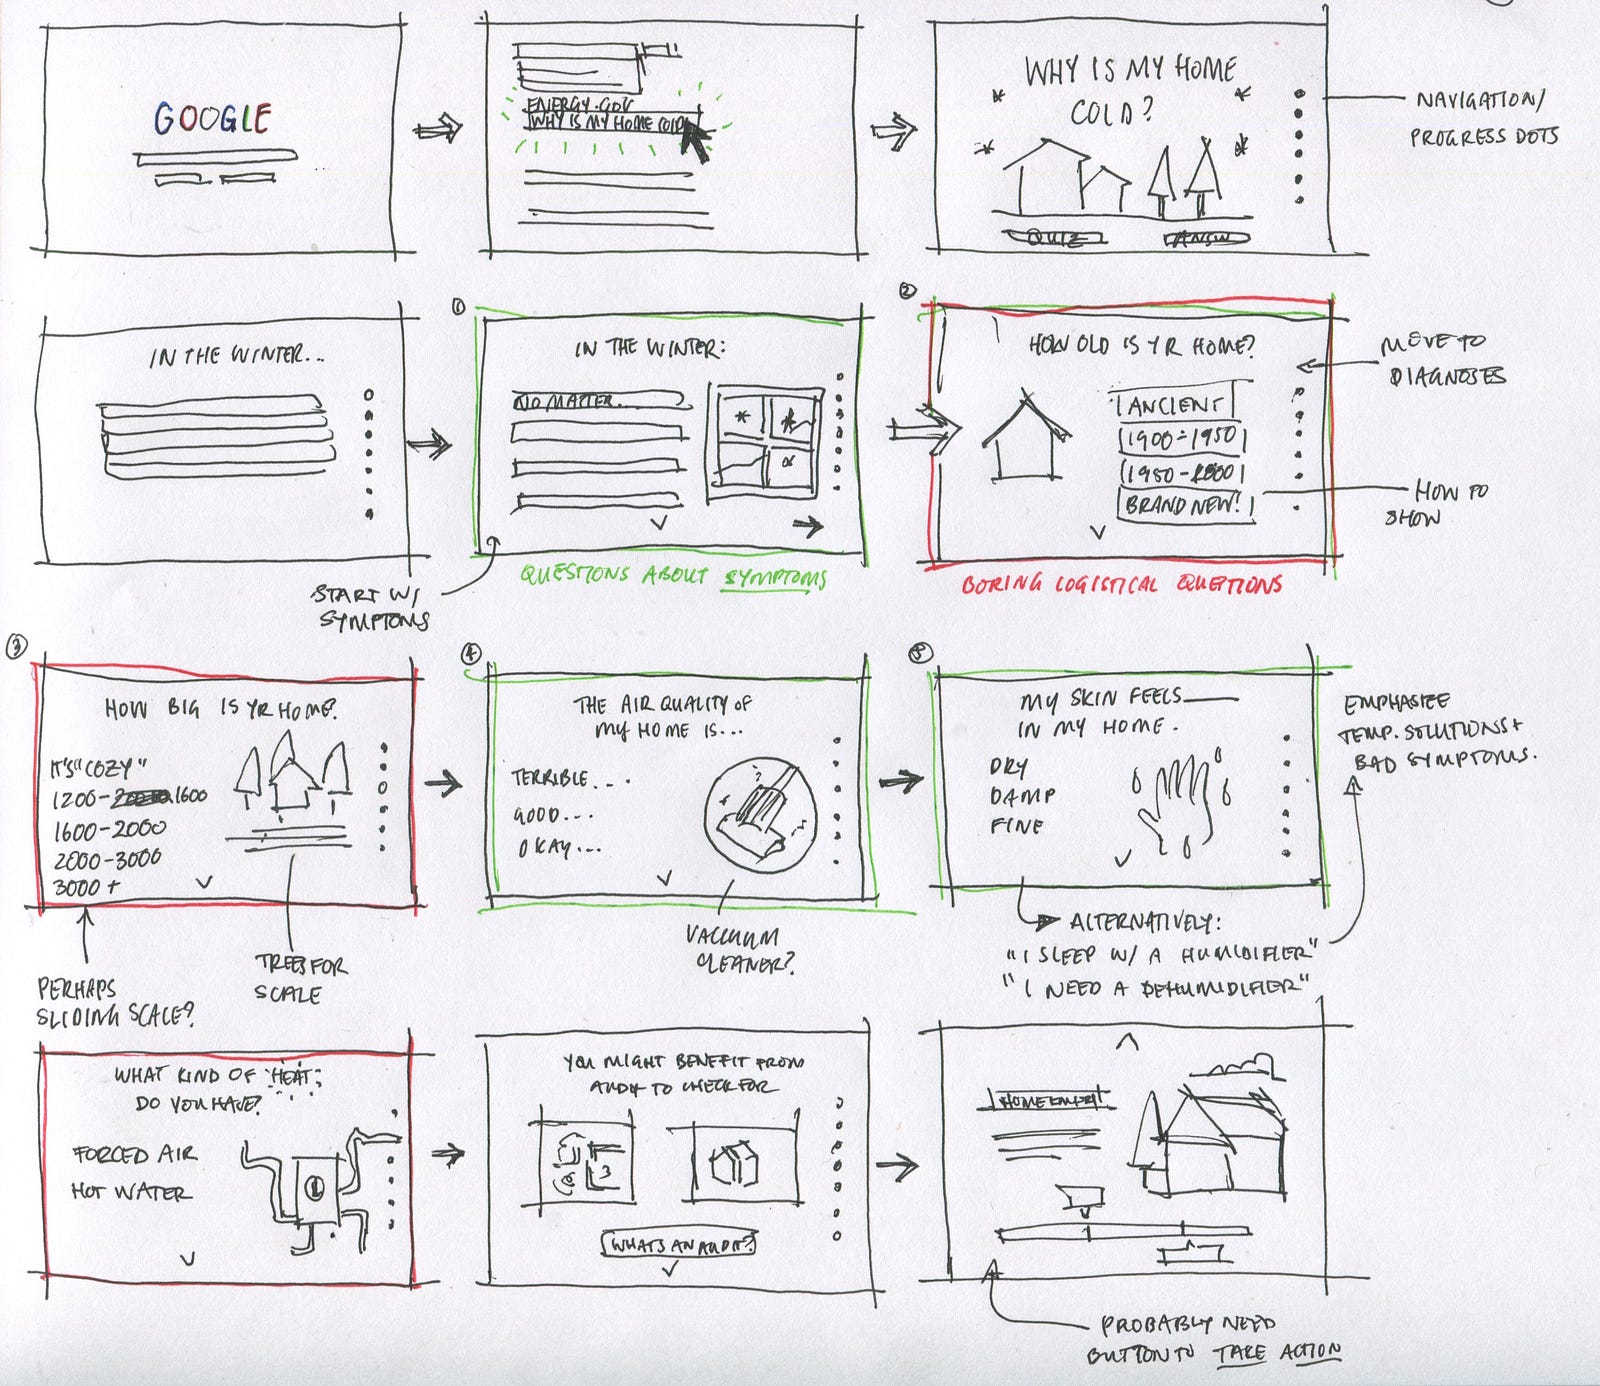 GOOGLE
ENERGY.GOV
WHY IS MY HOME COLD
WHY IS MY HOME
COLD?
QUIZ
ANSW
NAVIGATION/
PROGRESS DOTS
IN THE WINTER...
START W/
SYMPTOMS
1
IN THE WINTER:
NO MATTER...
QUESTIONS ABOUT SYMPTOMS
2
HOW OLD IS YR HOME?
ANCIENT
1900-1950
1950-2000
BRAND NEW!
BORING LOGISTICAL QUESTIONS
MOVE TO
DIAGNOSES
HOW TO
SHOW
3
HOW BIG IS YR HOME?
IT'S "COZY"
1200-1600
1600-2000
2000-3000
3000+
PERHAPS
SLIDING SCALE?
TREES FOR
SCALE
4
THE AIR QUALITY OF
MY HOME IS...
TERRIBLE...
GOOD...
OKAY...
VACUUM
CLEANER?
5
MY SKIN FEELS
IN MY HOME.
DRY
DAMP
FINE
EMPHASIZE
TEMP. SOLUTIONS +
BAD SYMPTOMS.
ALTERNATIVELY:
"I SLEEP W/ A HUMIDIFIER"
"I NEED A DEHUMIDIFIER"
WHAT KIND OF HEAT
DO YOU HAVE?
FORCED AIR
HOT WATER
YOU MIGHT BENEFIT FROM
AUDIT TO CHECK FOR
WHATS AN AUDIT?
HOME ENERGY
PROBABLY NEED
BUTTON TO TAKE ACTION